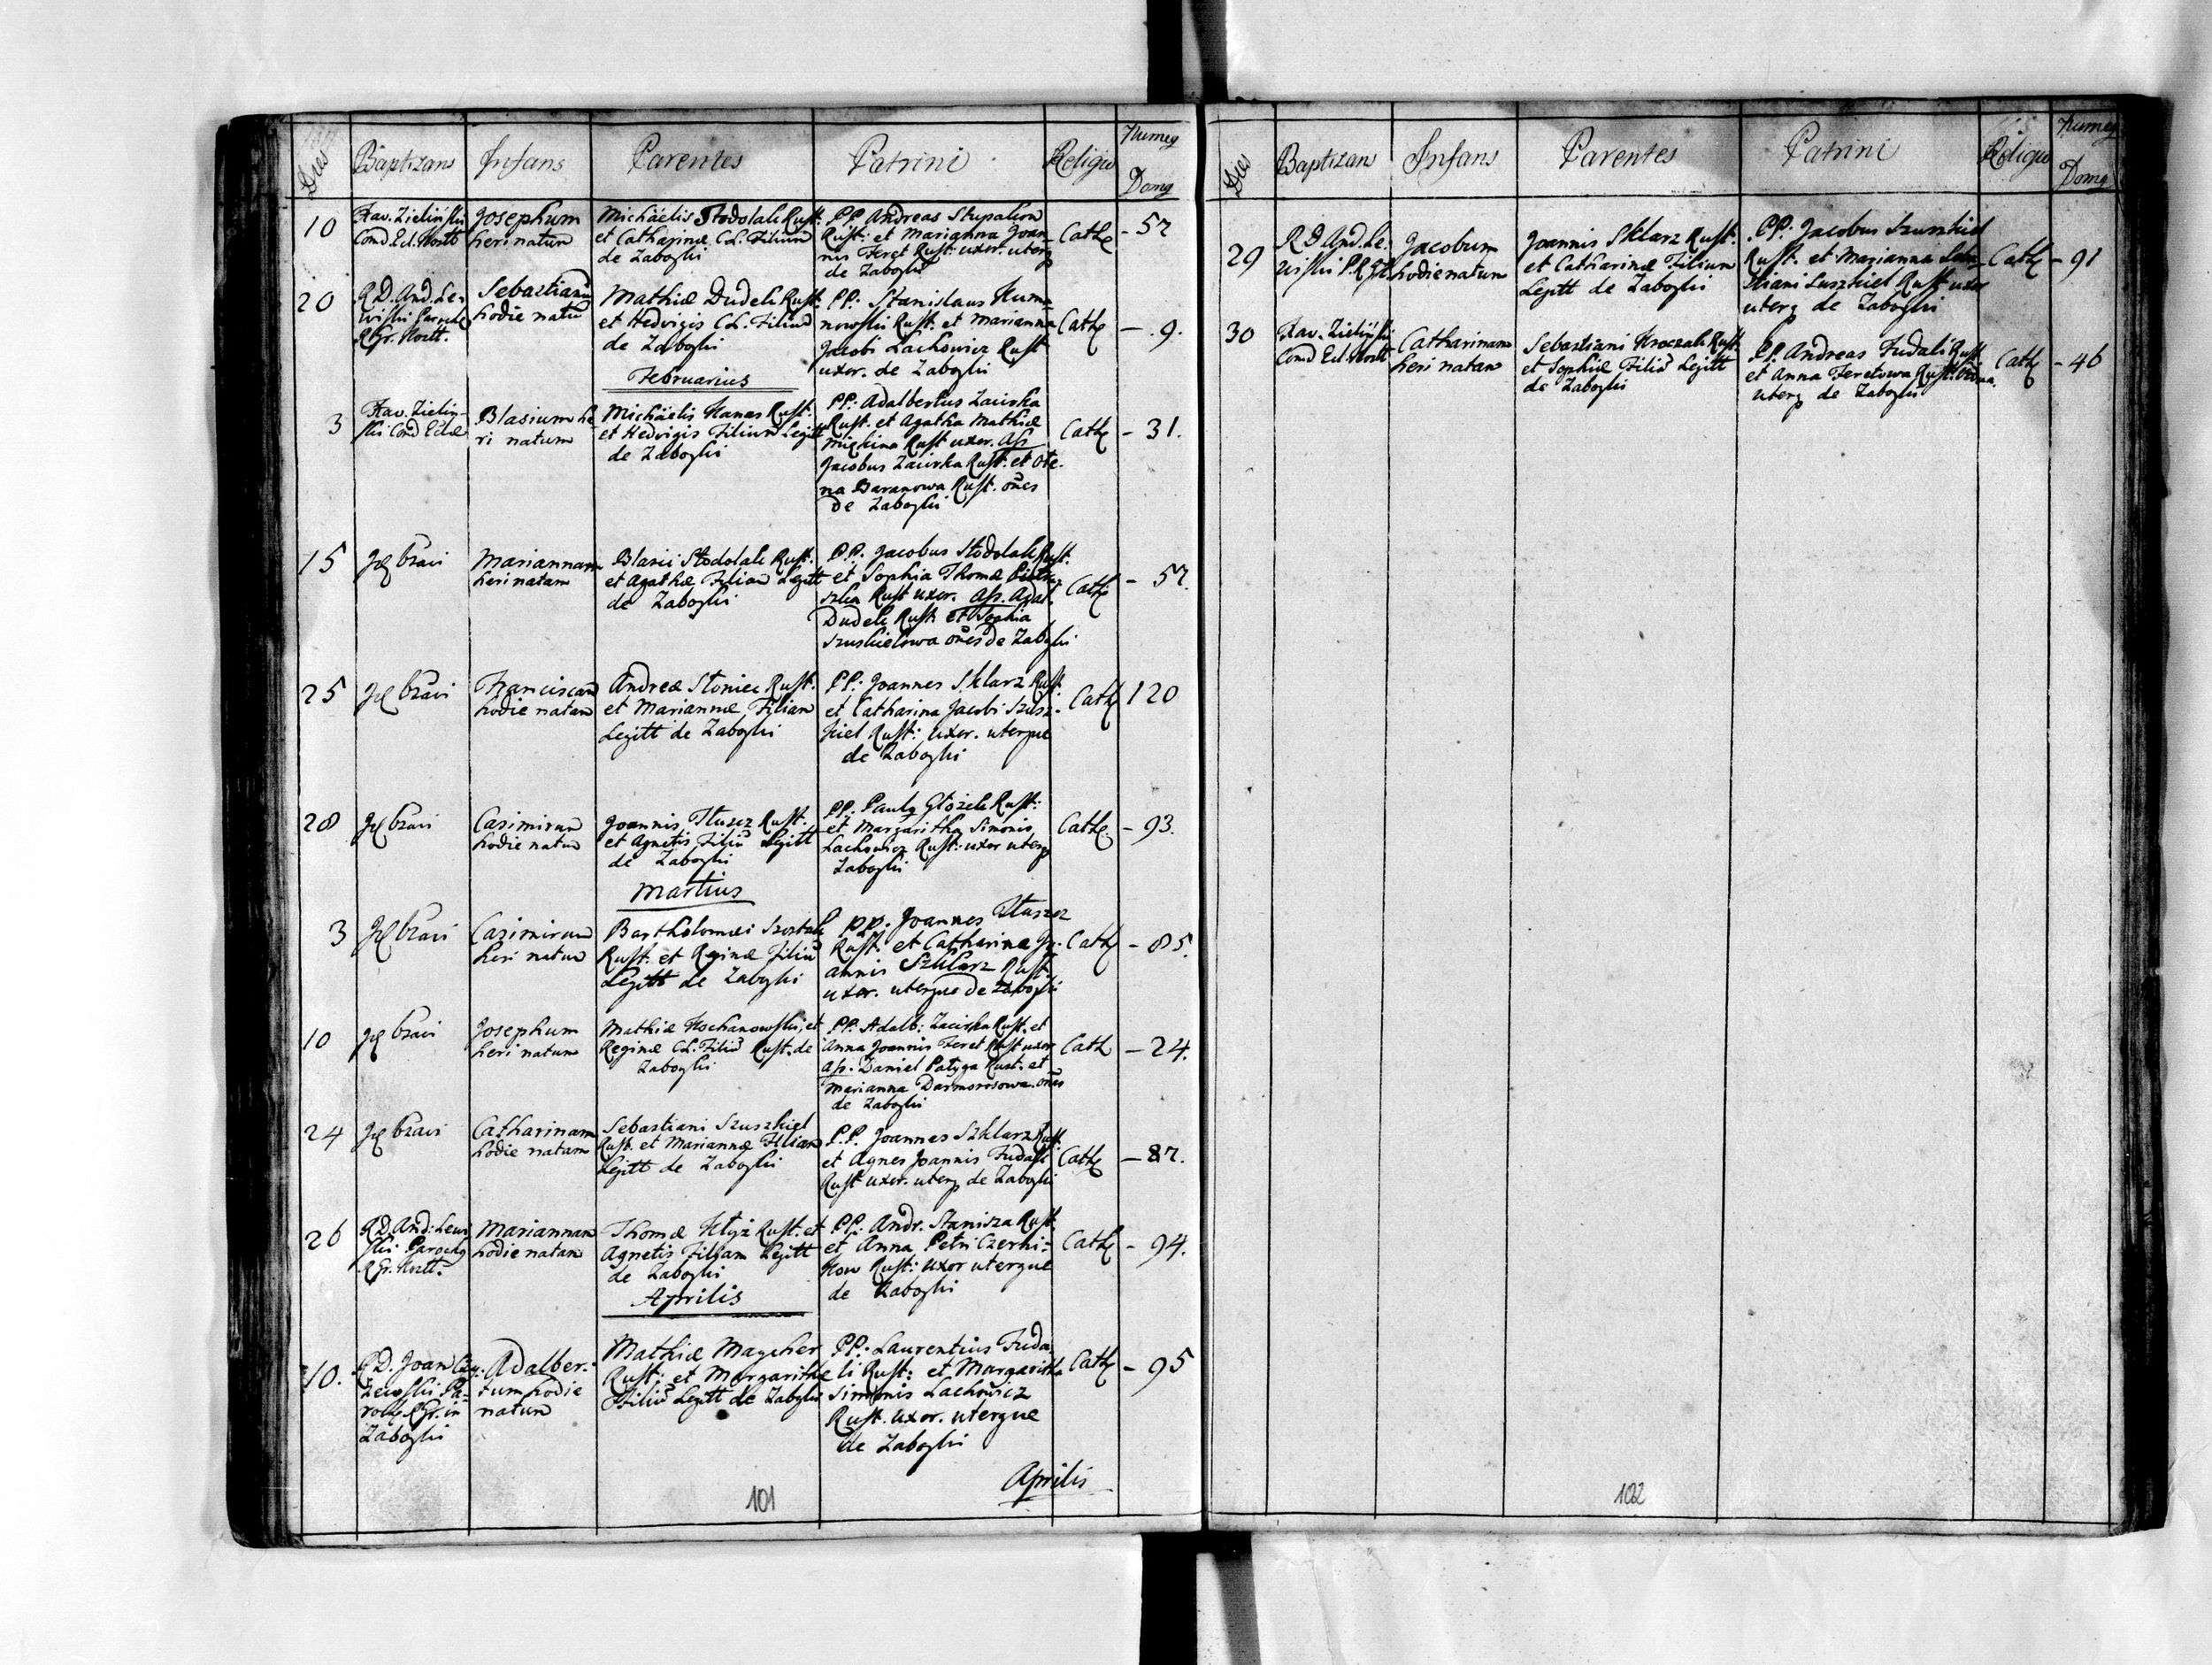 Dies Baptizans Infans Parentes Patrini Religio Numeg Domg
10
Xav. Zieliński
Comd Ecl.
Josephum
heri natum
Michäelis Stodolak Rust.
et Catharinæ CL. Filium
de Zaboyki
PP Andreas Stupalion
Rust: et Marianna Joan
nis Feret Rust: uxor. uterq
de Zaboyki
Cathe
- 57
20
R.D. And. Le-
wiski Parochq
R.Gr.
Sebastianū
hodie natū
Mathiæ Dudek Rust.
et Hedvigis CL. Filium
de Zaboyki
PP. Stanislaus Kum=
nowski Rust. et Marianna
Jacobi Lachowicz Rust
uxor. de Zaboyki
Cathe
- 9.
Februarius
3
Xav. Zielin-
ski Comd Eclæ
Blasium he
ri natum
Michäelis Kanas Rust.
et Hedvigis Filium Legitt
de Zaboyki
PP: Adalbertus Zacirka
Rust. et Agatha Mathiæ
Rust uxor. Ass
Jacobus Zacirka Rust. et Ote.
na Baranowa Rust. oñes
de Zaboyki
Cathe
- 31.
15
Mariannam
heri natam
Blasii Stodolak Rust.
et Agathæ Filiam Legitt
de Zaboyki
P.P. Jacobus Stodolak Rust.
et Sophia Thomæ
Rust uxor. Ass. Adal.
Dudek Rust et Sophia
Szuskielowa oñes de Zaboyki
Cathe
- 57.
25
Franciscam
hodie natam
Andreæ Stoniec Rust.
et Mariannæ Filiam
Legitt de Zaboyki
PP: Joannes Sklarz Rust
et Catharina Jacobi Szusz-
kiel Rust: uxor. uterque
de Zaboyki
Cathe
120
28
Casimirum
hodie natum
Joannis Tłuszcz Rust.
et Agnetis Filiū Legitt
de Zaboyki
PP: Paulq Głozek Rust:
et Margaritha Simonis
Lachowicz Rust: uxor uterq
Zaboyki
Cathe.
- 93.
Martius
3
Casimirum
heri natum
Bartholomæi Szostak
Rust. et Reginæ Filiū
Legitt de Zaboyki
PP: Joannes Tłuszcz
Rust. et Catharina Jo-
annis Szklarz Rust.
uxor. uterque de Zaboyki
Cathe
- 85.
10
Josephum
heri natum
Mathiæ Kochanowski, et
Reginæ CL. Filiū Rust. de
Zaboyki
PP. Adalb: Zacirka Rust. et
Anna Joannis Feret Rust uxor
ass. Daniel Patyga Rust. et
Marianna Darmorosowa. oñes
de Zaboyki
Cath
- 24.
24
Catharinam
hodie natam
Sebastiani Szuszkiel
Rust. et Mariannæ Filiam
Legitt de Zaboyki
P.P. Joannes Szklarz Rust.
et Agnes Joannis Fudali
Rust uxor. uterq de Zaboyki
Cathe
- 87.
26
R.D. And: Lewi
ski Parochq
R.Gr.
Mariannam
hodie natam
Thomæ Kłyż Rust. et
Agnetis Filiam Legitt
de Zaboyki
PP. Andr. Stanisza Rust.
et Anna Petri Czerni=
Rust: uxor uterque
de Zaboyki
Cathe
- 94.
Aprilis
10.
R.D. Joan
Pa-
rochq R.Gr. in
Zaboyki
Adalber-
tum hodie
natum
Mathiæ Maycher
Rust: et Margarithæ
Filiū Legitt de Zaboyki
PP: Laurentius Fuda-
li Rust: et Margaritha
Simonis Lachowicz
Rust. uxor. uterque
de Zaboyki
Cathe
- 95
Aprilis
101
Dies Baptizans Infans Parentes Patrini Religio Numeg Domg
29
R D And. Le.
wiski P.R.Gr.
Jacobum
hodie natum
Joannis Sklarz Rust.
et Catharinæ Filium
Legitt de Zaboyki
PP: Jacobus Szuszkiel
Rust. et Marianna Seba-
stiani Suszkiel Rust uxor
uterq de Zaboyki
Cathe
- 91
30
Xav. Zieliński
Comd Ecl.
Catharinam
heri natam
Sebastiani Kroczak Rust.
et Sophiæ Filiā Legitt
de Zaboyki
PP. Andreas Fudali Rust
et Anna Feretowa Rust.
uterq de Zaboyki
Cathe
- 46
102